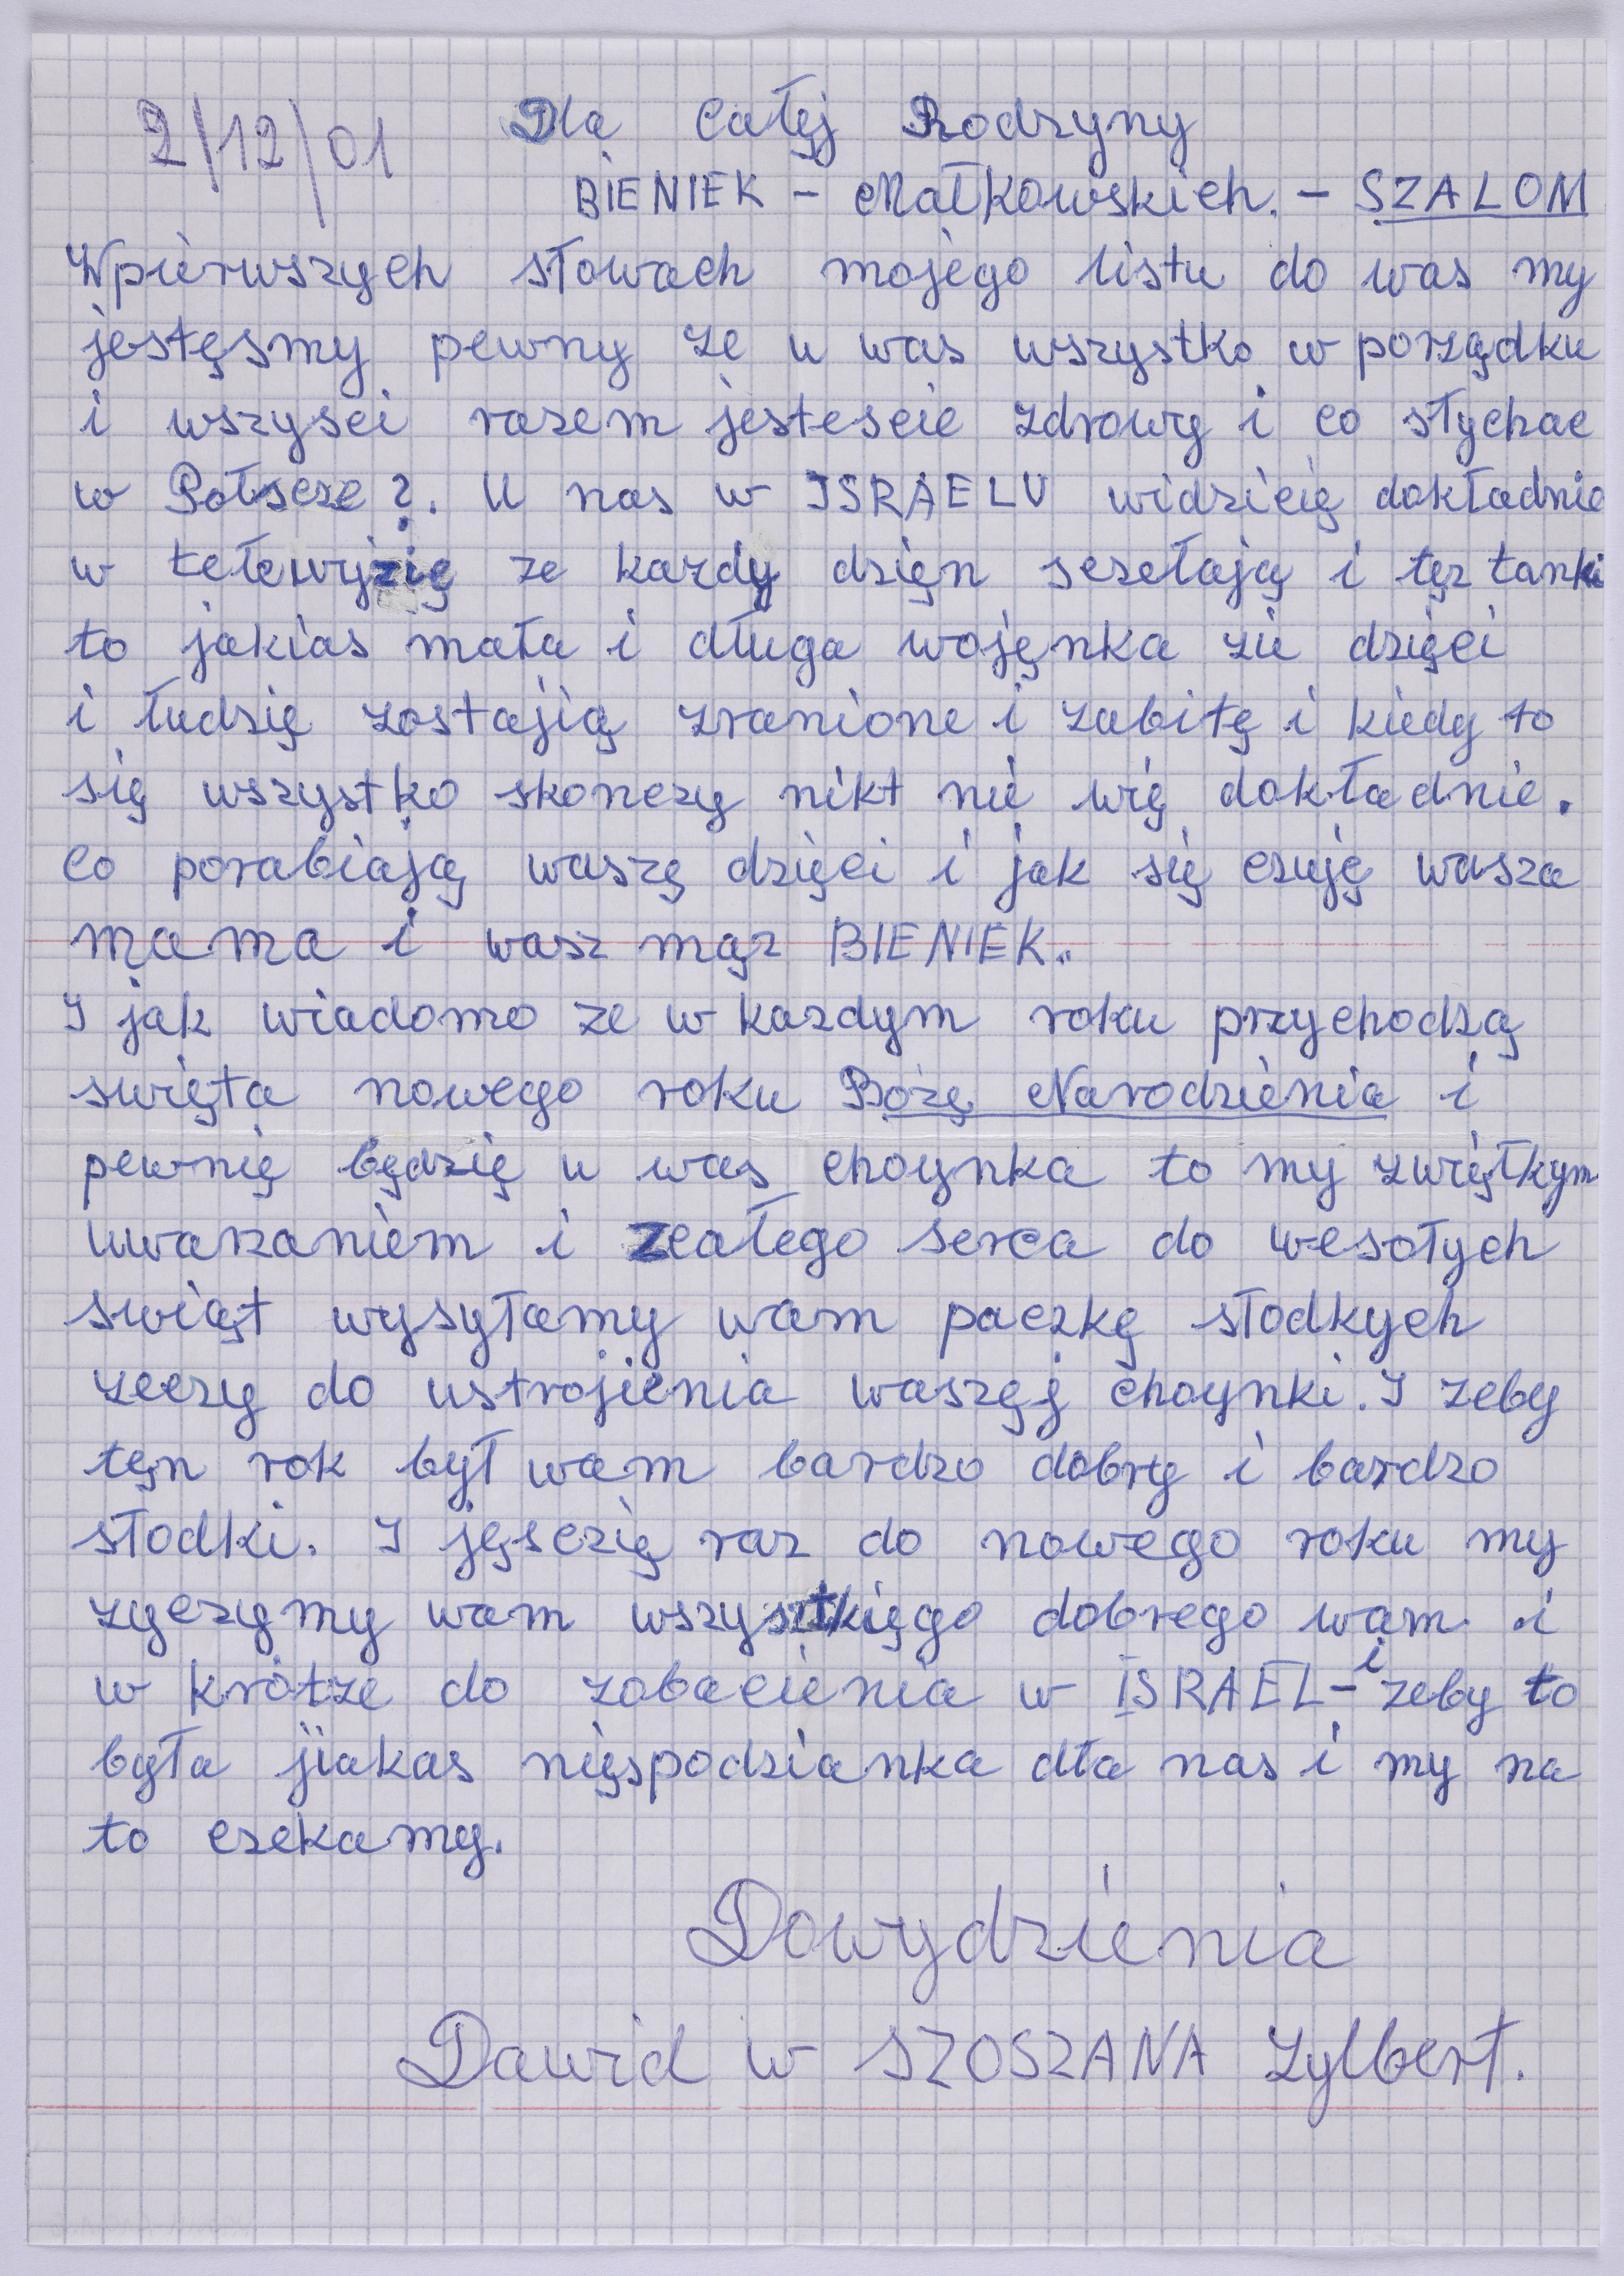 2/12/01 Dla Całęj Rodzyny
BIENIEK - Małkowskich. - SZALOM
Wpierwszych słowach mojego listu do was my
jestęsmy pewny ze u was wszystko w porządku
i wszysci rasem jestescie zdrowy i co słychac
w Połscze?. U nas w ISRAELU widzicię dokładnie
w tełewyzię ze kazdy dzięn sczełają i tęz tanki
to jakias mała i długa wojęnka zie dzięci
i łudzię zostajią zranione i zabitę i kiedy to
się wszystko skonczy nikt nie wię dokładnie.
Co porabiają waszę dzięci i jak się czuję wasza
mama i wasz mąz BIENIEK.
I jak wiadomo ze w kazdym roku przychodzą
swięta nowego roku Bozę Narodzienia i
pewnię będzię u was choynka to my zwięłkym
uwazaniem i zcałego serca do wesołych
swiąt wysyłamy wam paczkę słodkych
zeczy do ustrojienia waszęj choynki. I zeby
tęn rok był wam bardzo dobry i bardzo
słodki. I jęsczię raz do nowego roku my
zyczymy wam wszystkięgo dobrego wam i
w krótze do zobacienia w ISRAEL - i zeby to
była jiakas nięspodzianka dła nas i my na
to czekamy.
Dowydzienia
Dawid w SZOSZANA Zylbert.